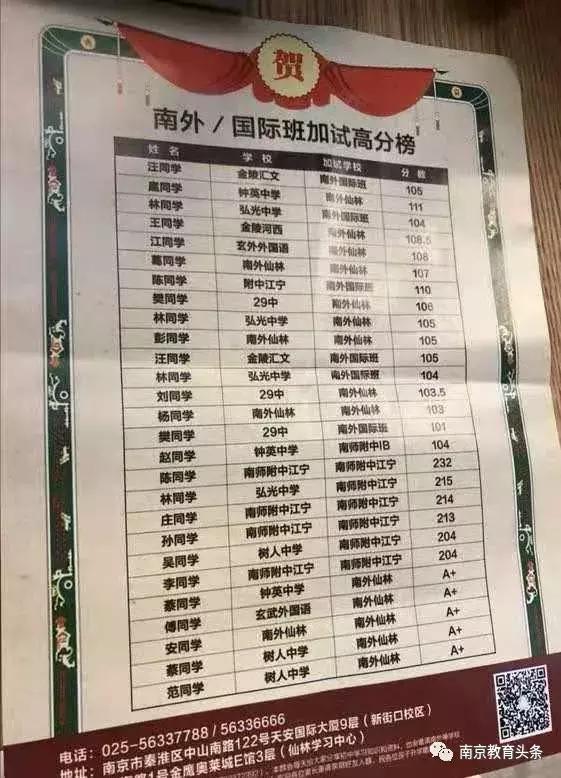 贺
南外/国际班加试高分榜
姓名 学校 加试学校 分数
汪同学 金陵汇文 南外国际班 105
扈同学 钟英中学 南外仙林 111
林同学 弘光中学 南外国际班 104
王同学 金陵河西 南外仙林 108.5
江同学 玄外外国语 南外仙林 108
葛同学 南外仙林 南外仙林 107
陈同学 附中江宁 南外国际班 110
樊同学 29中 南外仙林 106
林同学 弘光中学 南外仙林 105
彭同学 南外仙林 南外仙林 105
汪同学 金陵汇文 南外国际班 105
林同学 弘光中学 南外国际班 104
刘同学 29中 南外仙林 103.5
杨同学 南外仙林 南外仙林 103
樊同学 29中 南外国际班 101
赵同学 钟英中学 南师附中IB 104
陈同学 南师附中江宁 南师附中江宁 232
林同学 弘光中学 南师附中江宁 215
庄同学 南师附中江宁 南师附中江宁 214
孙同学 南师附中江宁 南师附中江宁 213
吴同学 树人中学 南师附中江宁 204
李同学 南师附中江宁 南师附中江宁 204
蔡同学 钟英中学 南外仙林 A+
傅同学 玄武外国语 南外仙林 A+
安同学 南外仙林 南外仙林 A+
蔡同学 树人中学 南外仙林 A+
范同学 树人中学 南外仙林 A+
电话：025-56337788 / 56336666
地址：南京市秦淮区中山南路122号天安国际大厦9层（新街口校区）
路1号金鹰奥莱城E馆3层（仙林学习中心）
南京教育头条